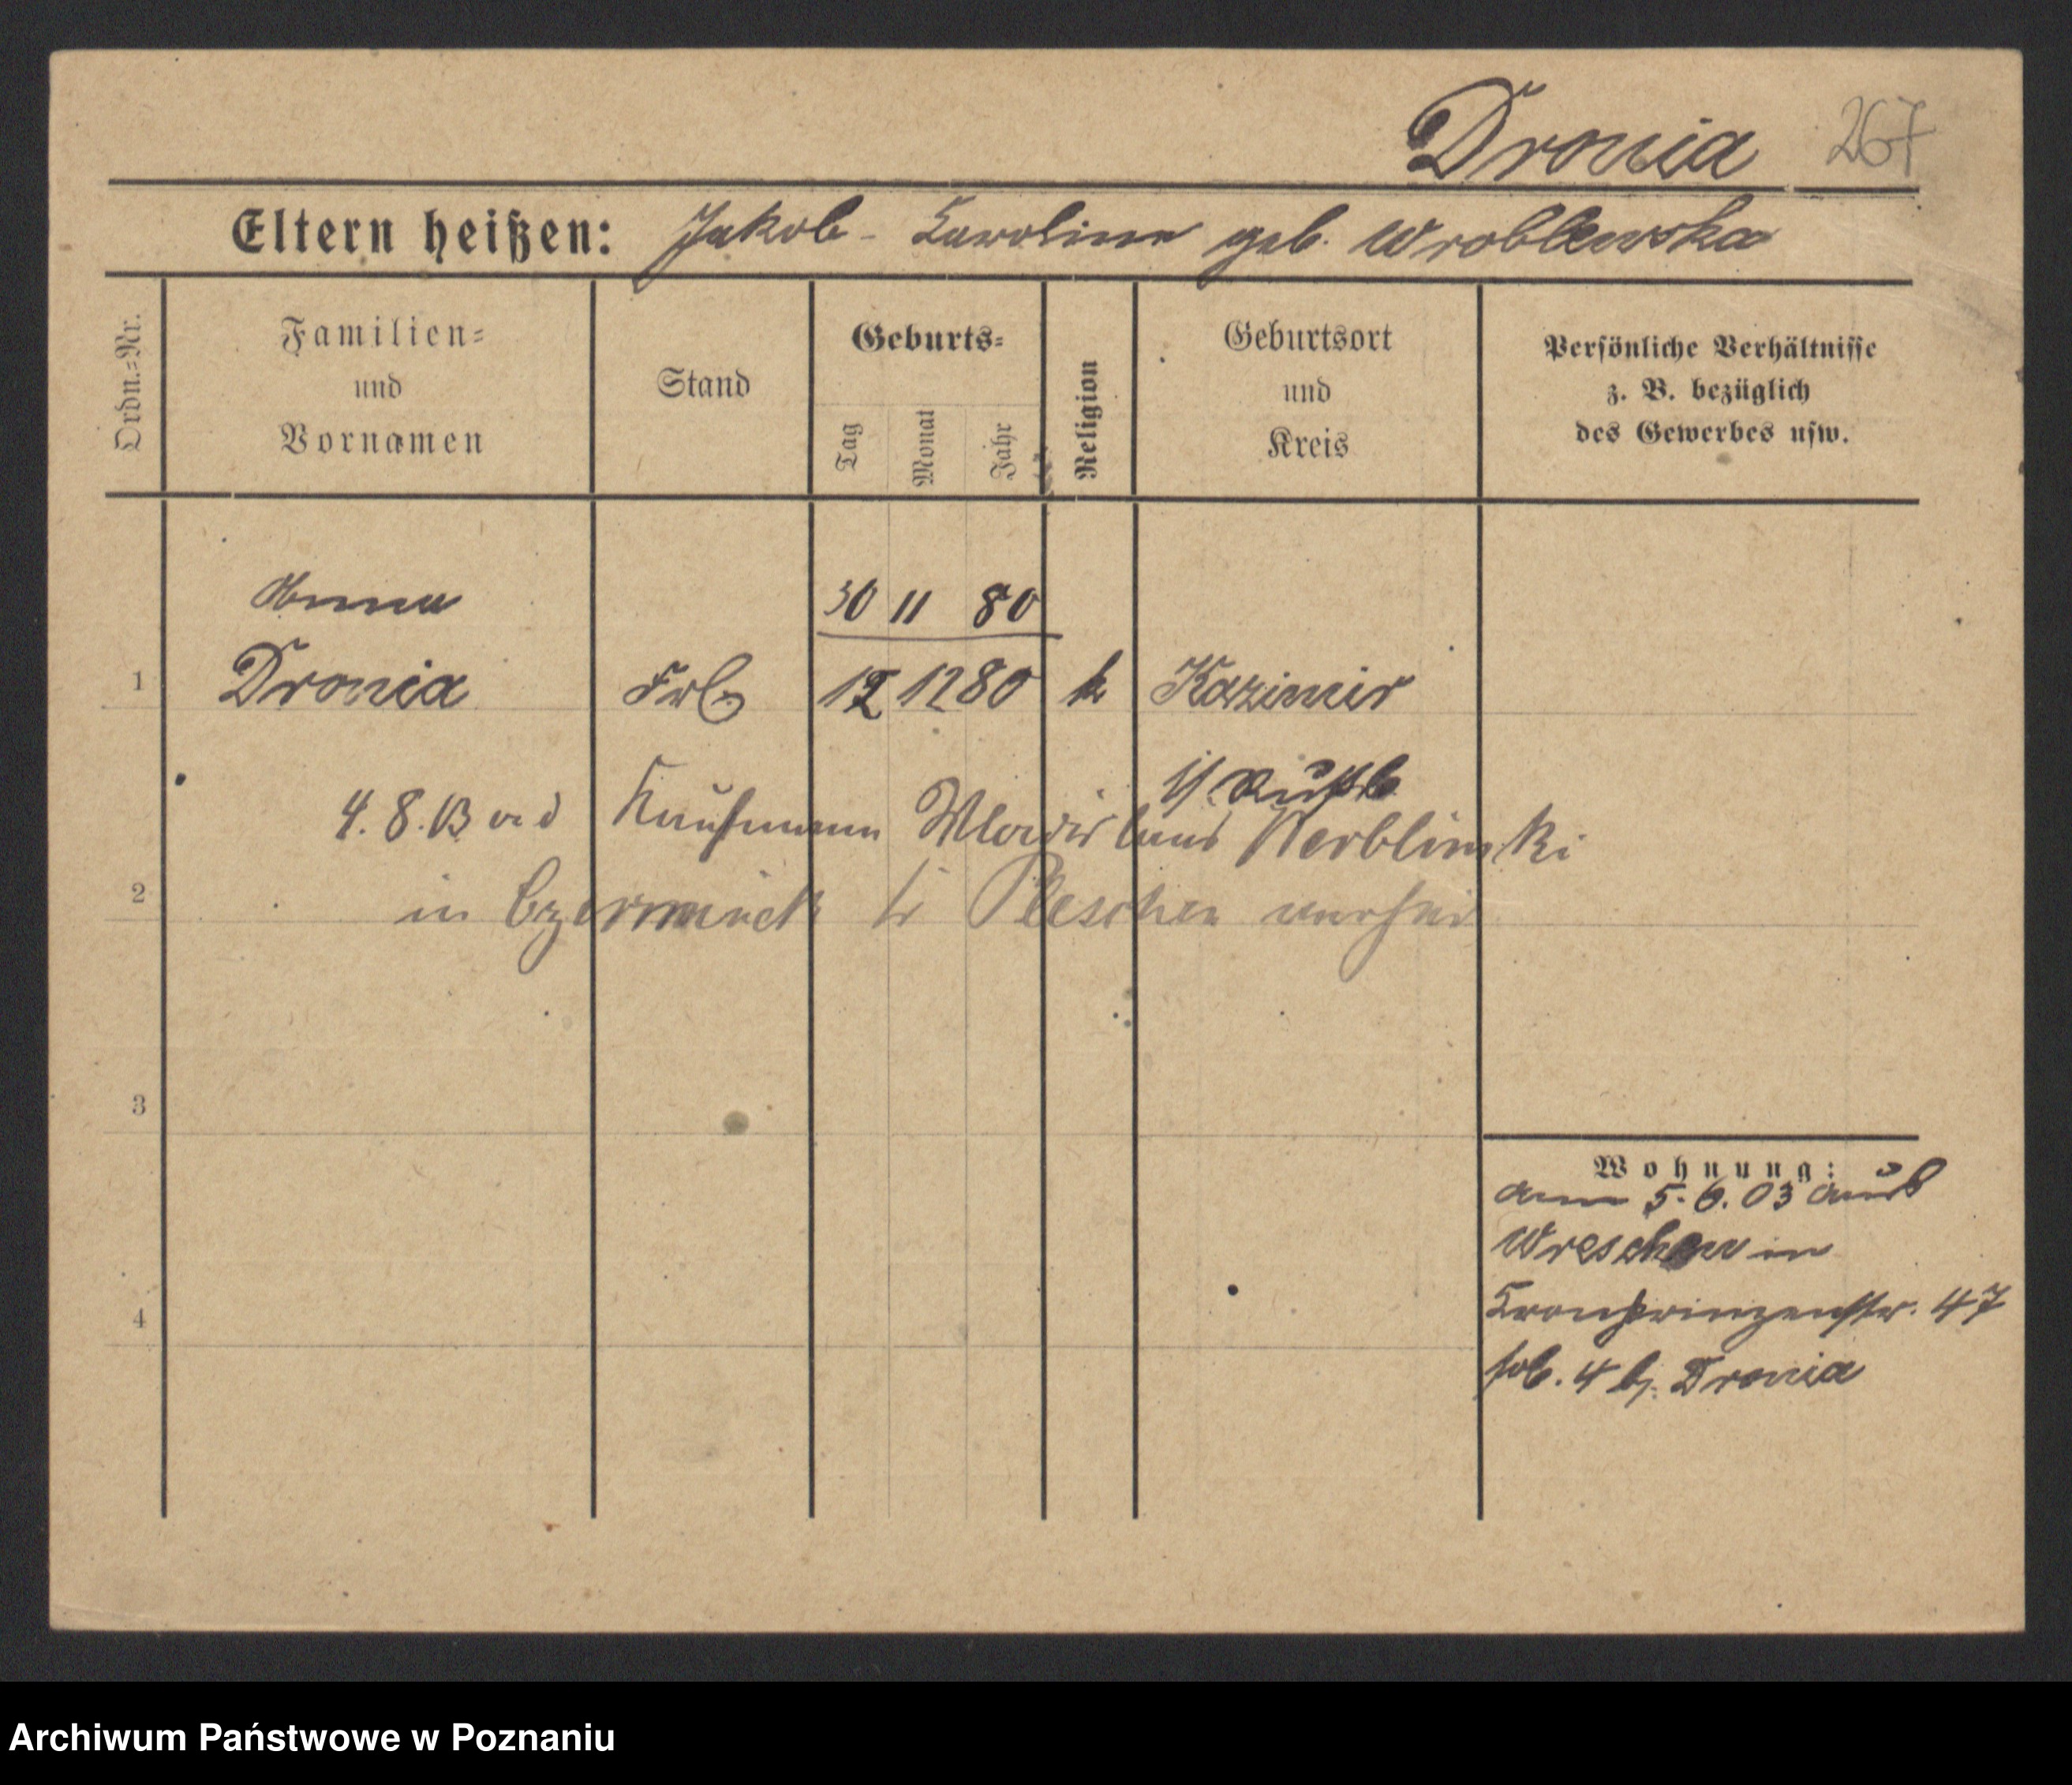 Dronia 267
Eltern heißen: Jakob - Karoline geb. Wroblewska
Ordn.=Nr.
Familien=
und
Vornamen
Stand
Geburts=
Tag
Monat
Jahr
Religion
Geburtsort
und
Kreis
Persönliche Verhältnisse
z. B. bezüglich
des Gewerbes usw.
30 11 80
1 Dronia Frl 12 12 80 k Kazimir
4. 8. 13 Kaufmann Wladislaus Werblinski
2 in Pleschen
3
4
Wohnung:
am 5. 6. 03 aus
Wreschen in
Kronprinzenstr. 47
b. Dronia
Archiwum Państwowe w Poznaniu